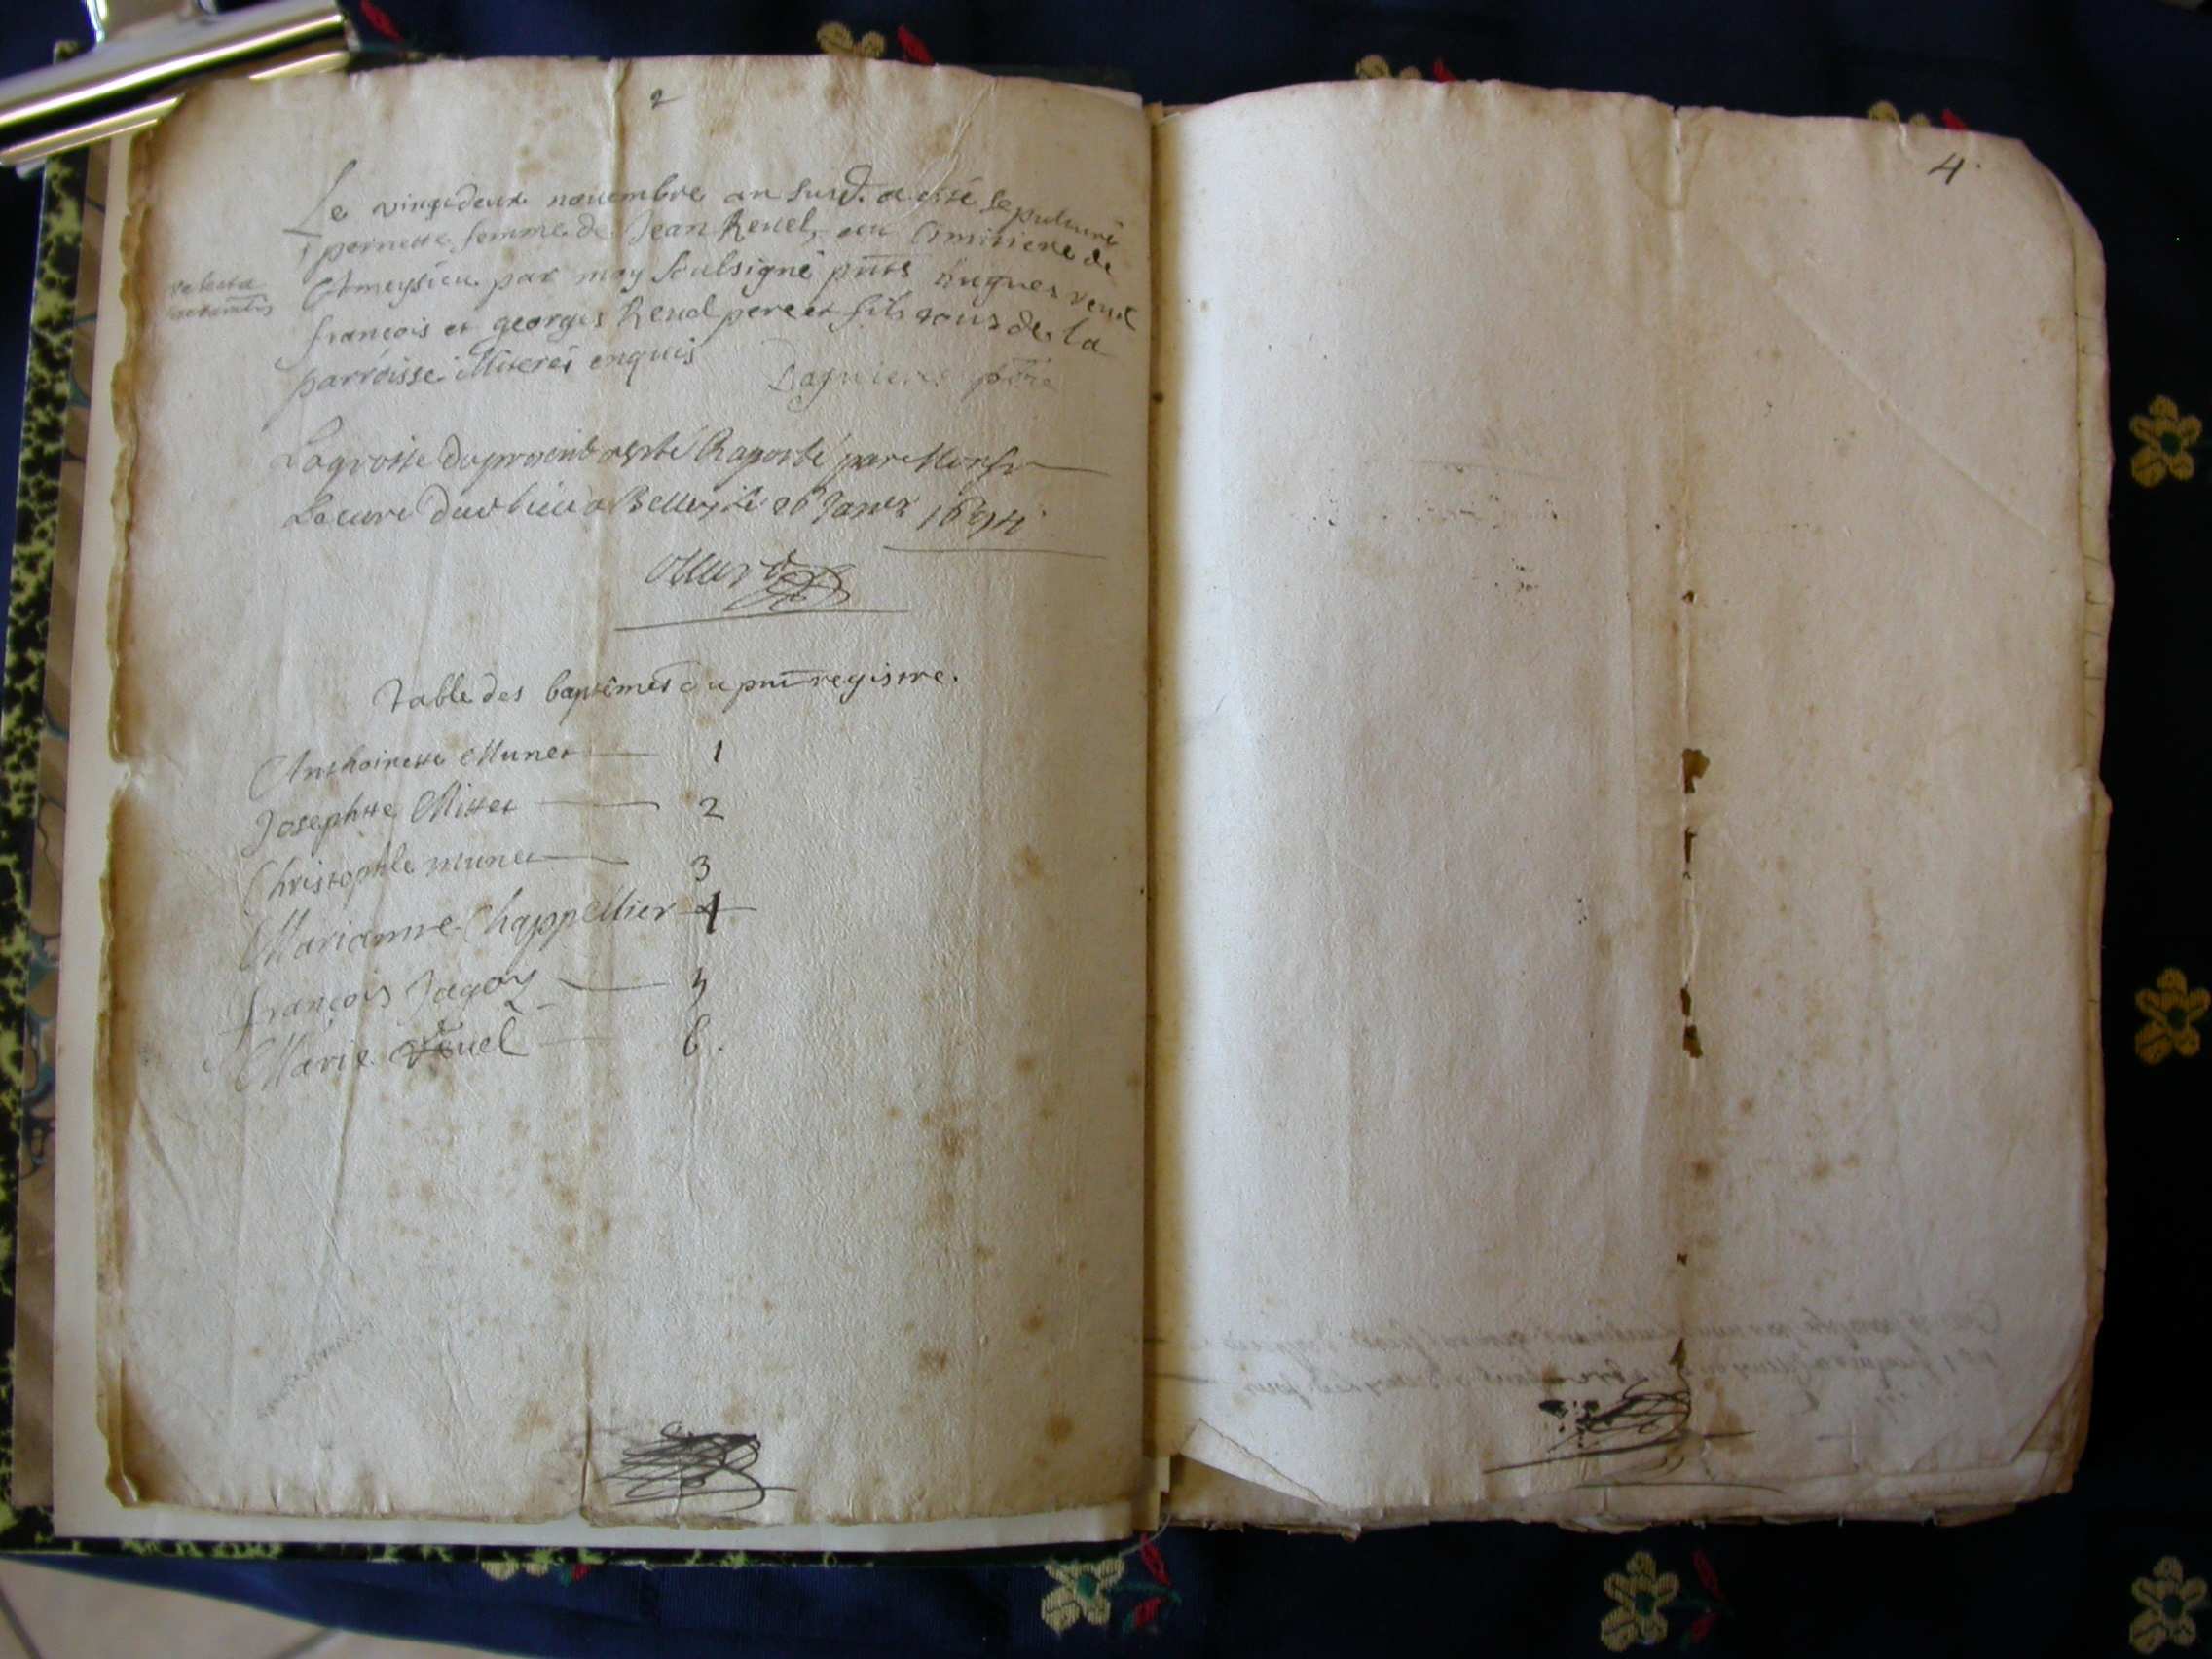 2
Le vingtdeux novembre an susd. a esté sepulturé
pernette femme de Jean Revel, au Cimitiere de
Ameysieu par moy soubsigné pnts hugues revel
françois et georges Revel pere et fils tous de la
parroisse illiterés enquis
Dagnieres ptre
La grosse du present a esté Raporté par Monsr
Le curé dud lieu a Belley le 26 Janer 1694
Table des baptêmes du pnt registre.
Anthoinette Munet 1
Josephtte Mittet 2
Christophle munet 3
Marianne Chappellier 4
françois Jagoy 5
Marie Revel 6.
4.